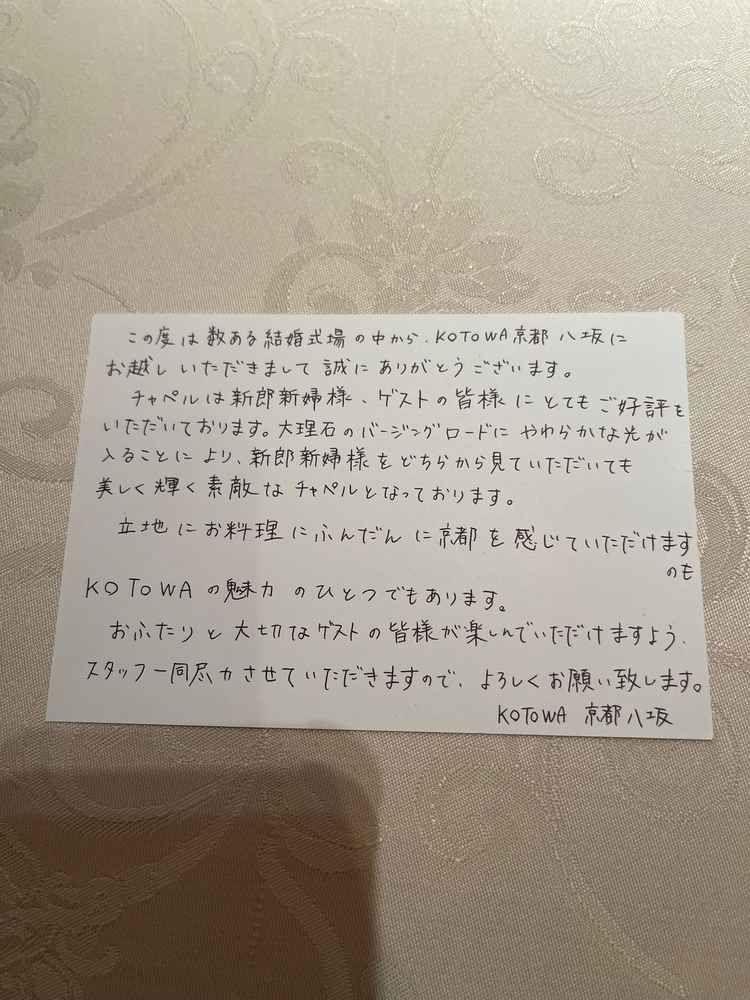 この度は数ある結婚式場の中から、KOTOWA京都 八坂に
お越しいただきまして誠にありがとうございます。
チャペルは新郎新婦様、ゲストの皆様にとてもご好評を
いただいております。大理石のバージングロードにやわらかな光が
入ることにより、新郎新婦様をどちらから見ていただいても
美しく輝く素敵なチャペルとなっております。
立地にお料理にふんだんに京都を感じていただけます
のも
KOTOWAの魅力のひとつでもあります。
おふたりと大切なゲストの皆様が楽しんでいただけますよう、
スタッフ一同尽力させていただきますので、よろしくお願い致します。
KOTOWA 京都八坂